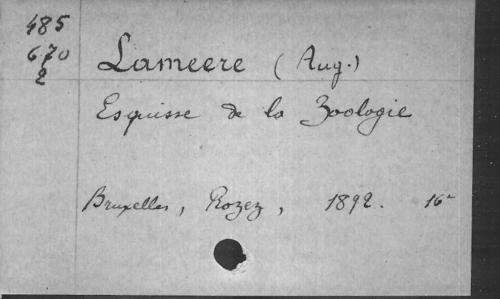 485
670
2
Lameere (Aug.)
Esquisse de la Zoologie
Bruxelles, Rozez, 1892. 16°